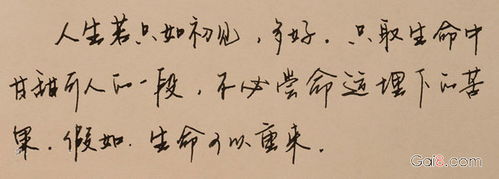 人生若只如初见,多好.只取生命中
甘甜可人的一段,不必尝命运埋下的苦
果.假如.生命可以重来.
Gai8.com